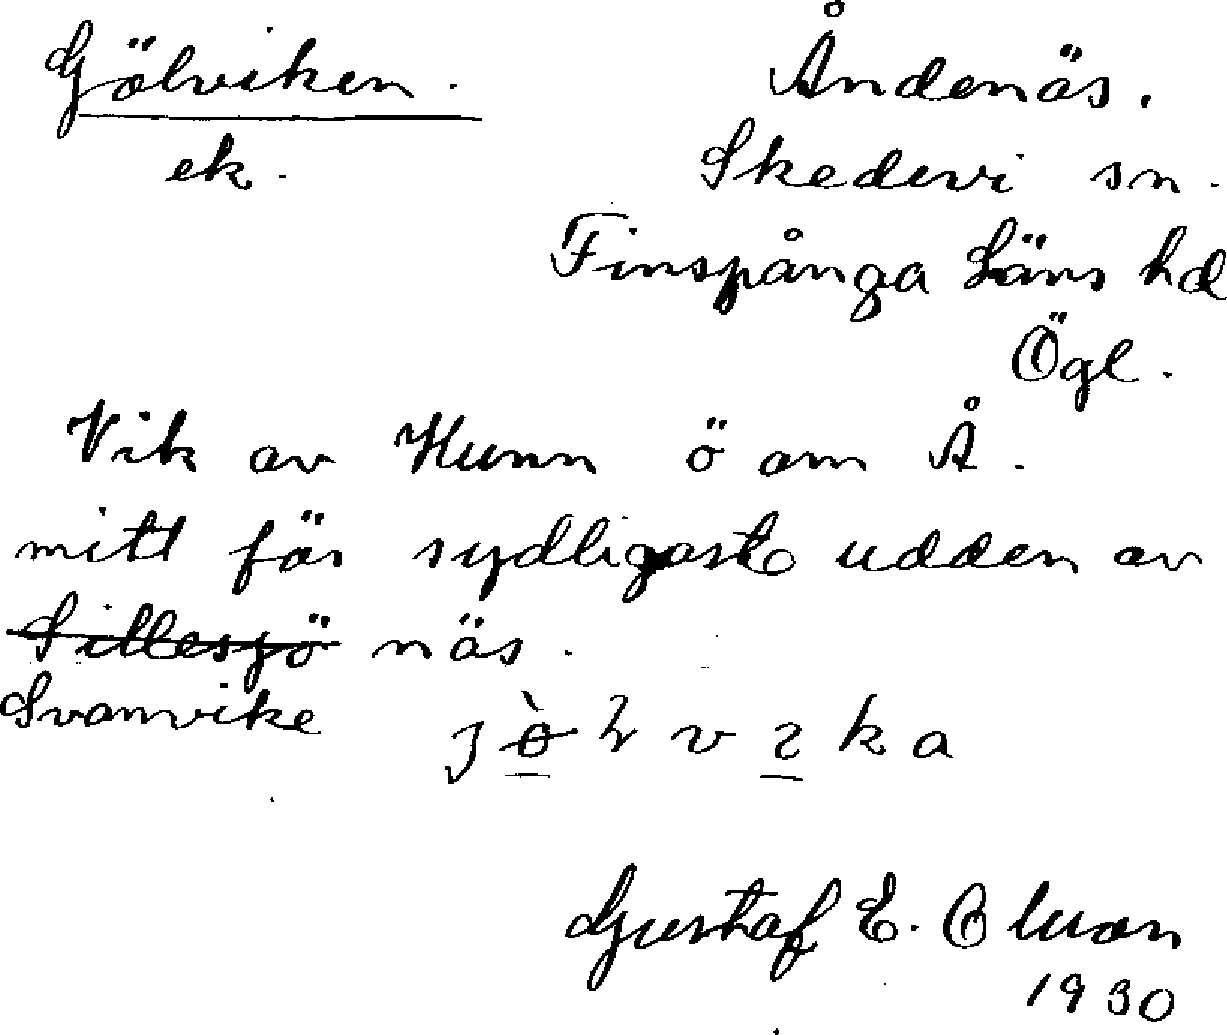 Gölviken.
ek.
Åndenäs.
Skedevi sn.
Finspånga Läns hd
Ögl.
Vik av Hunn ö om Å.
mitt för sydligaste udden av
Sillesjö näs.
Svanvike
Gustaf E. Olsson
1930